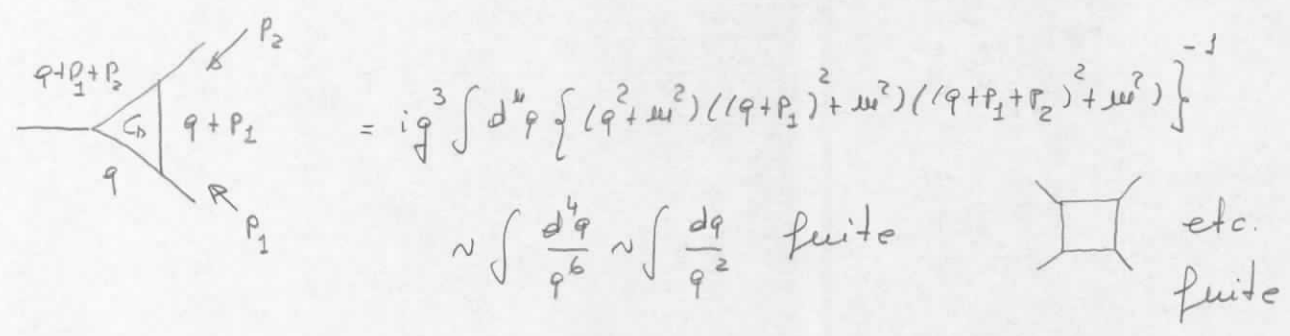 P₂
q+P₁+P₂
q + P₁
q
P₁
= ig³ ∫ d⁴q {(q²+m²)((q+P₁)²+m²)((q+P₁+P₂)²+m²)}⁻¹
~ ∫ d⁴q/q⁶ ~ ∫ dq/q² finite
etc.
finite